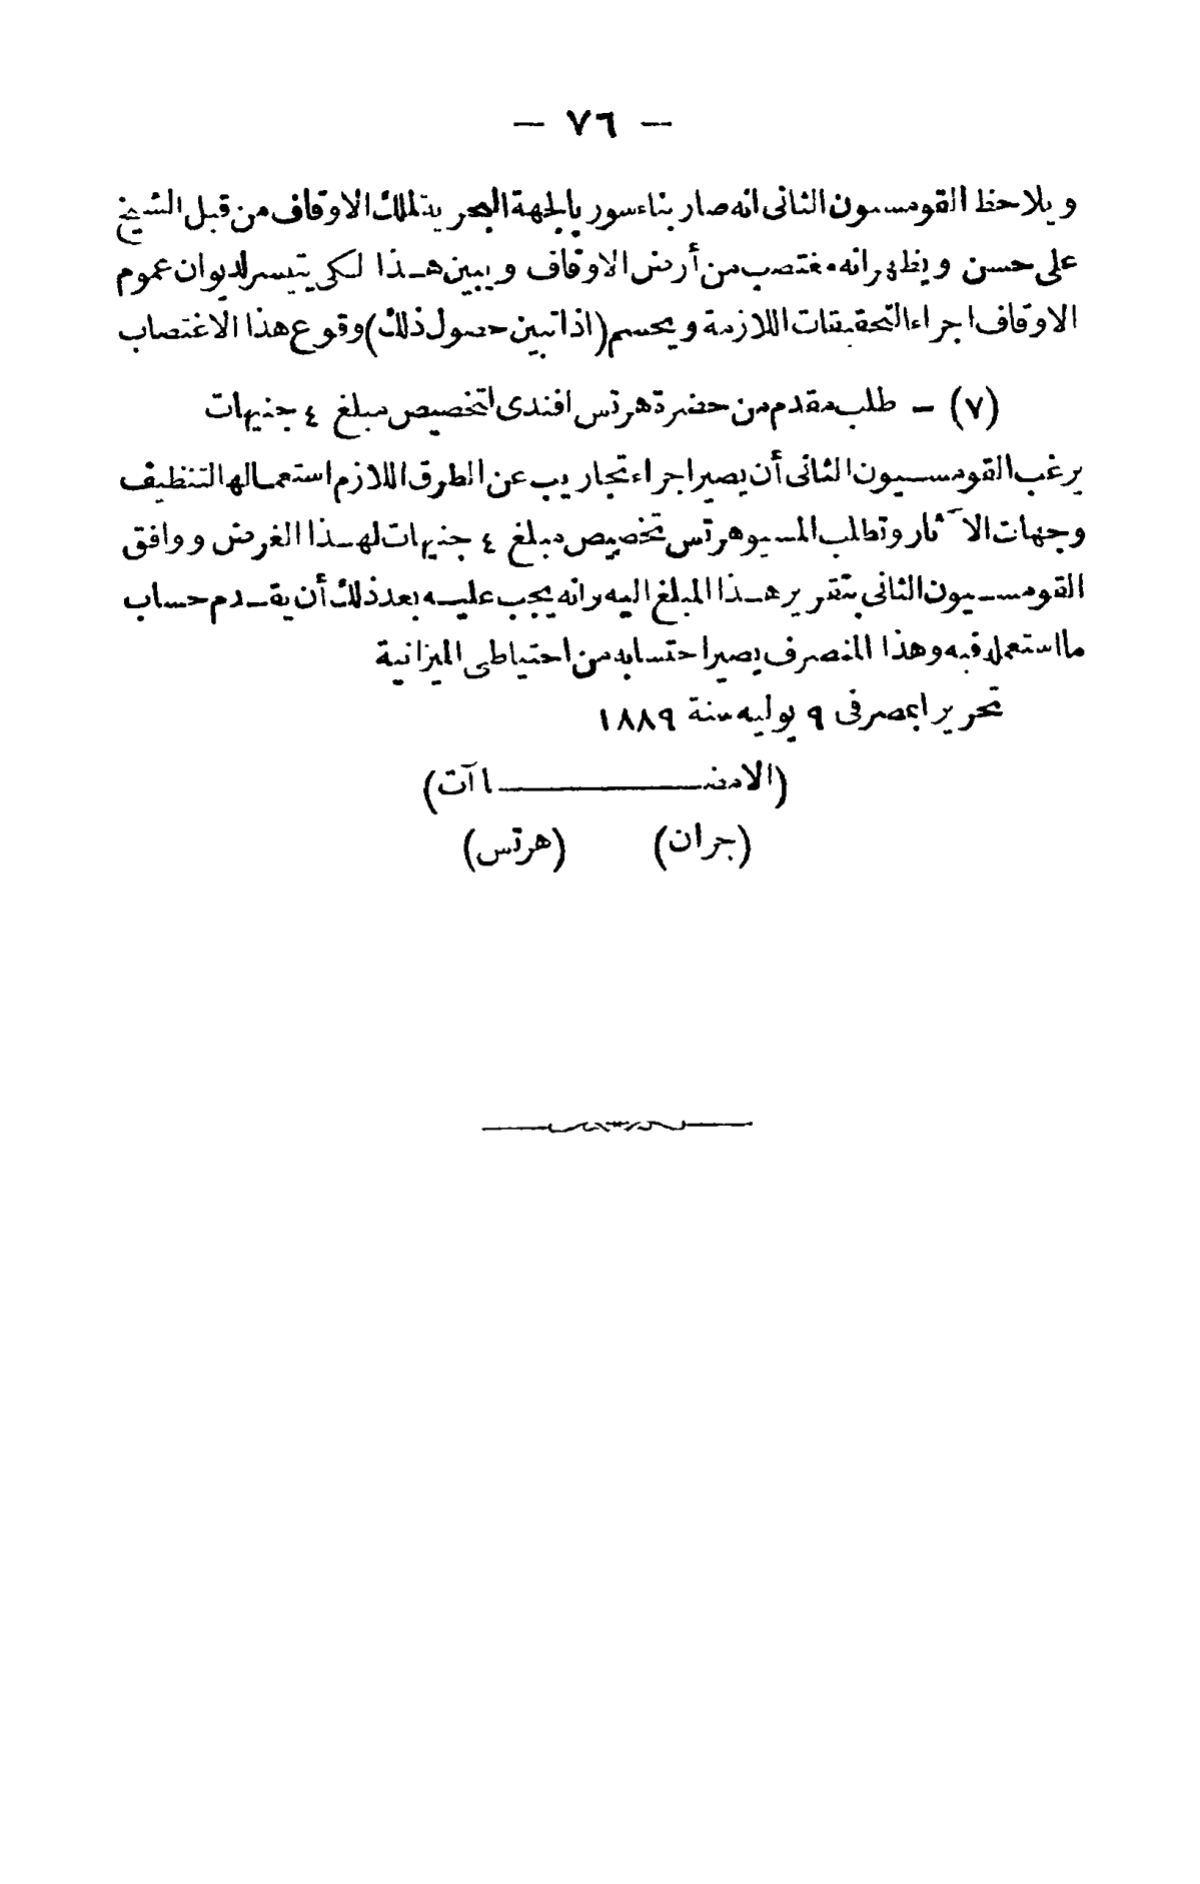 — ٧٦ —
ويلاحظ القومسيون الثانى انه صار بناء سور بالجهة البحرية لملك الاوقاف من قبل الشيخ
على حسن ويظهر انه مغتصب من أرض الاوقاف ويبين هـذا لكى يتيسر لديوان عموم
الاوقاف اجراء التحقيقات اللازمة ويحسم (اذا تبين حصول ذلك) وقوع هذا الاغتصاب
(٧) – طلب مقدم من حضرة هرتس افندى لتخصيص مبلغ ٤ جنيهات
يرغب القومسـيون الثانى أن يصير اجراء تجاريب عن الطرق اللازم استعمـالها لتنظيف
وجهات الآثار وتطلب المسيو هرتس تخصيص مبلغ ٤ جنيهات لهـذا الغرض ووافق
القومسـيون الثانى بتقرير هـذا المبلغ اليه وانه يجب عليـه بعد ذلك أن يقـدم حساب
ما استعمل فيه وهذا المنصرف يصير احتسابه من احتياطى الميزانية
تحريرا بمصر فى ٩ يوليه سنة ١٨٨٩
(الامضـــــــاآت)
(جران) (هرتس)